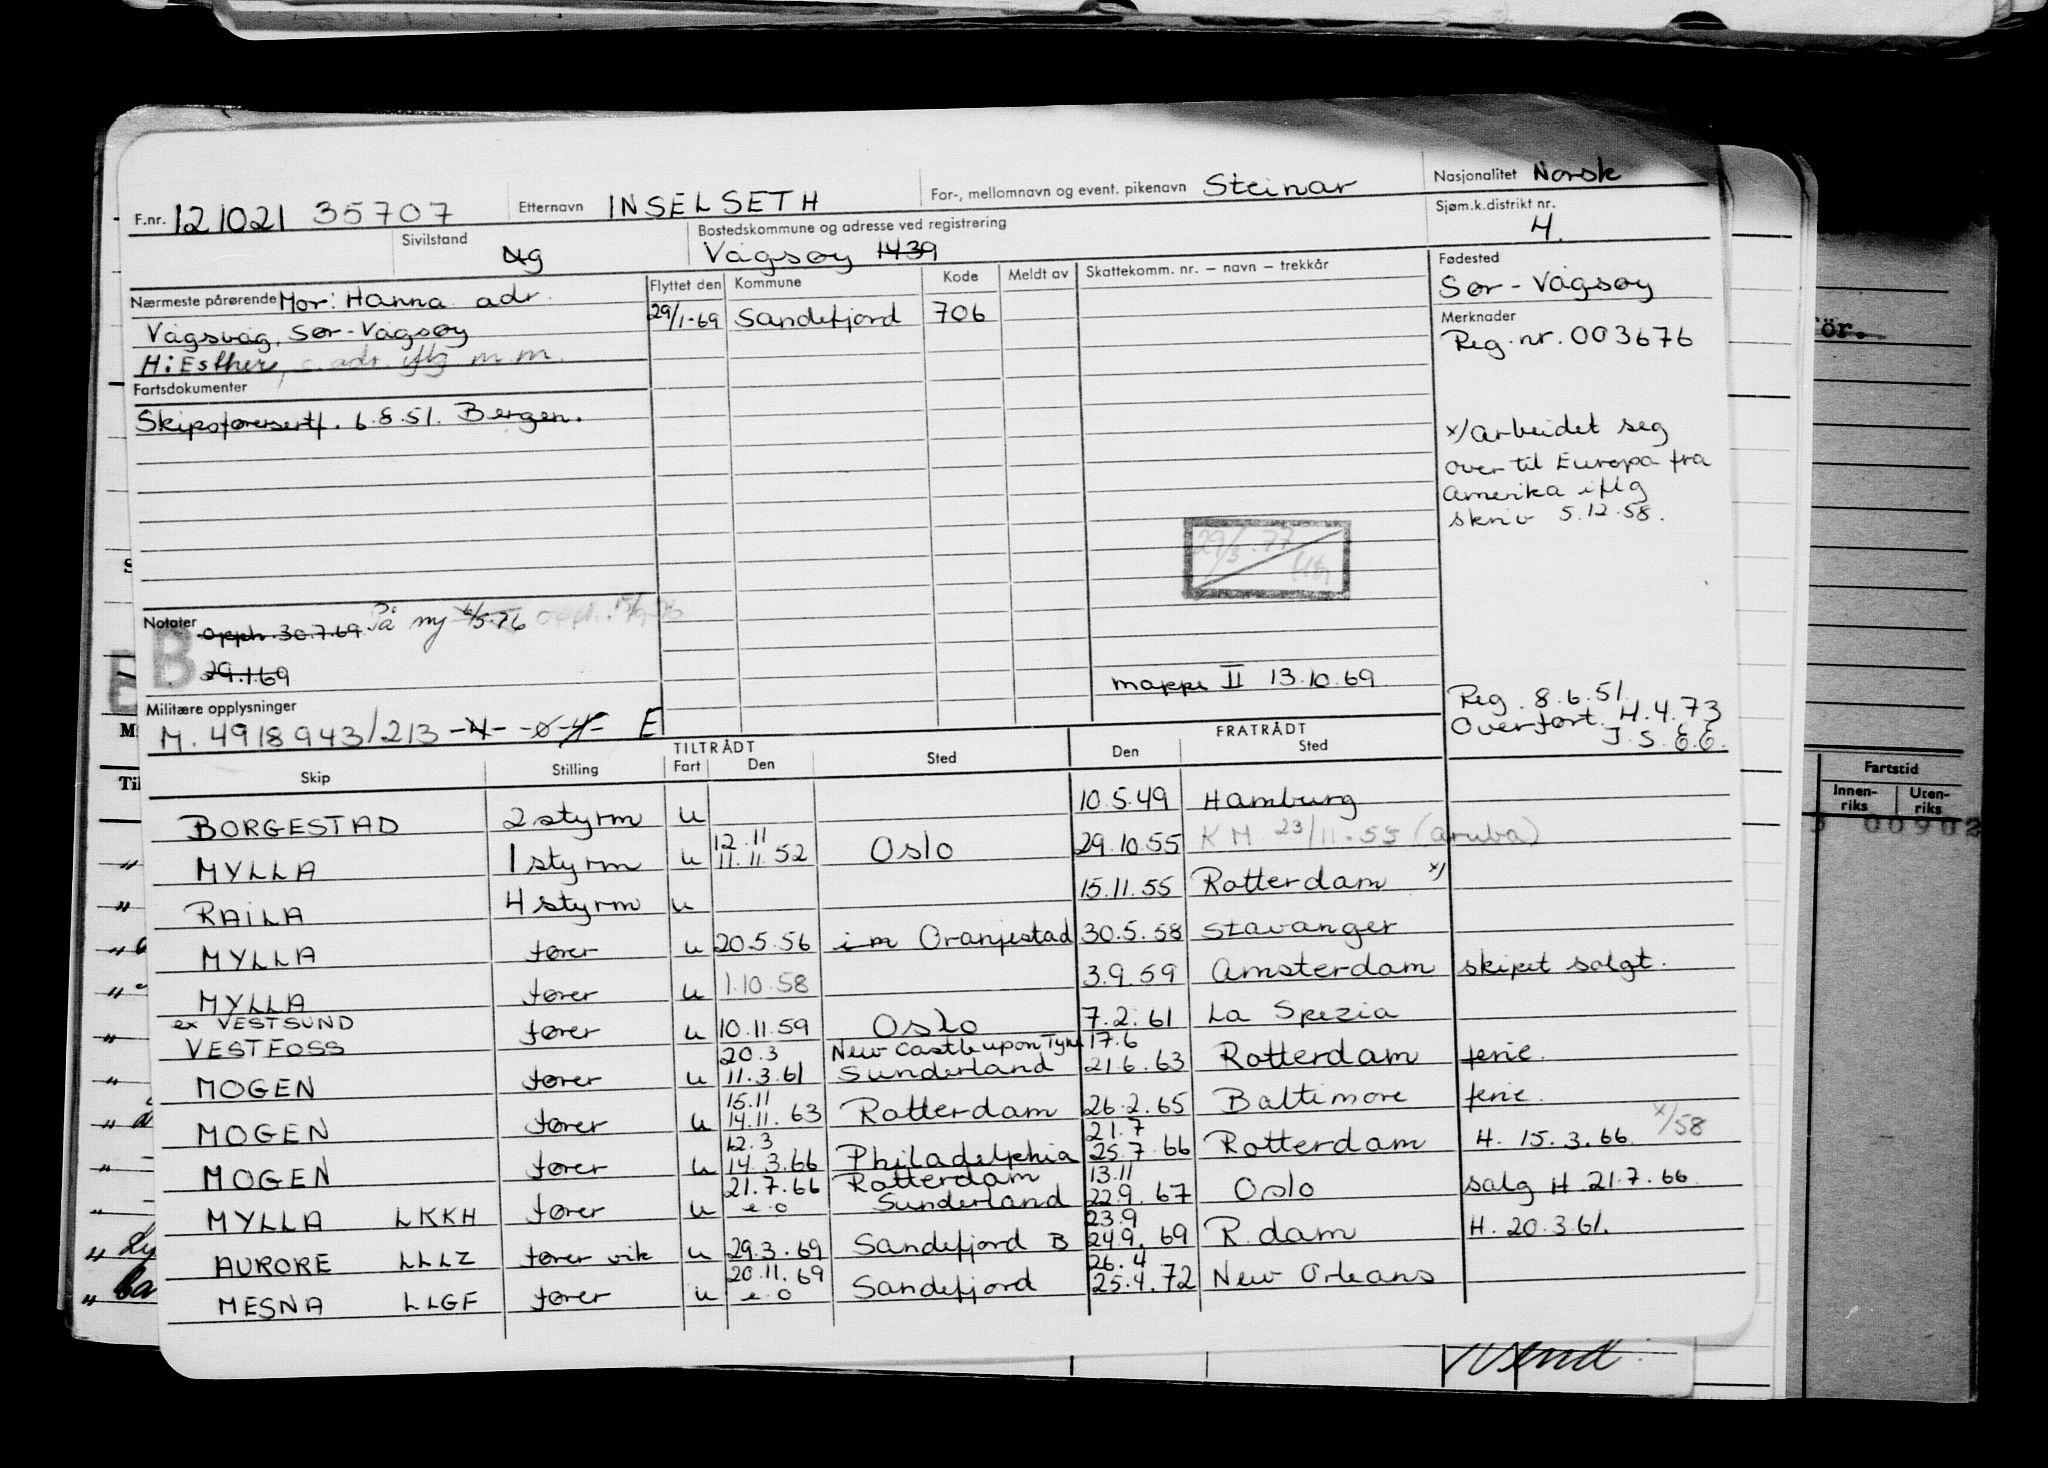 F.nr. 121021 35707 Etternavn INSELSETH For-, mellomnavn og event. pikenavn Steinar Nasjonalitet Norsk
Sivilstand g Bostedskommune og adresse ved registrering Vågsøy 1439 Sjøm.k.distrikt nr. 4.
Nærmeste pårørende Mor: Hanna adr.
Vågsvåg, Sør-Vågsøy
H: Esther, c. adr. iflg m.m.
Flyttet den Kommune Kode Meldt av Skattekomm. nr. – navn – trekkår
29/1-69 Sandefjord 706
Fødested
Sør-Vågsøy
Merknader
Reg. nr. 003676
x/ arbeidet seg
over til Europa fra
Amerika iflg
skriv 5.12.58.
Fartsdokumenter
Skipsførersertf. 6.8.51. Bergen.
29/3.77
Notater opph. 30.7.69 På ny 6/5-76
B 29.1.69
mappe II 13.10.69
Reg. 8.6.51.
Overført. 4.4.73
J.S.E.E.
Militære opplysninger
M. 4918943/213 E
TILTRÅDT FRATRÅDT
Skip Stilling Fart Den Sted Den Sted
BORGESTAD 2 styrm u 10.5.49 Hamburg
MYLLA 1 styrm u 12.11 11.11.52 Oslo 29.10.55 KM 23/11-55 (aruba)
RAILA 4 styrm u 15.11.55 Rotterdam x/
MYLLA fører u 20.5.56 i m Oranjestad 30.5.58 Stavanger
MYLLA fører u 1.10.58 3.9.59 Amsterdam skipet solgt.
ex VESTSUND
VESTFOSS fører u 10.11.59 Oslo 7.2.61 La Spezia
MOGEN fører u 20.3 11.3.61 New Castle upon Tyne Sunderland 17.6 21.6.63 Rotterdam ferie.
MOGEN fører u 15.11 14.11.63 Rotterdam 26.2.65 Baltimore ferie.
MOGEN fører u 12.3 14.3.66 Philadelphia 21.7 25.7.66 Rotterdam H. 15.3.66 x/58
MYLLA LKKH fører u 21.7.66 e.o Rotterdam Sunderland 13.11 22.9.67 Oslo salg H 21.7.66
AURORE LLLZ fører vik u 29.3.69 Sandefjord B 23.9 24.9.69 R.dam H. 20.3.61.
MESNA LLGF fører u 20.11.69 e.o Sandefjord 26.4 25.4.72 New Orleans
ör.
Fartstid
Innen-riks Uten-riks
00902